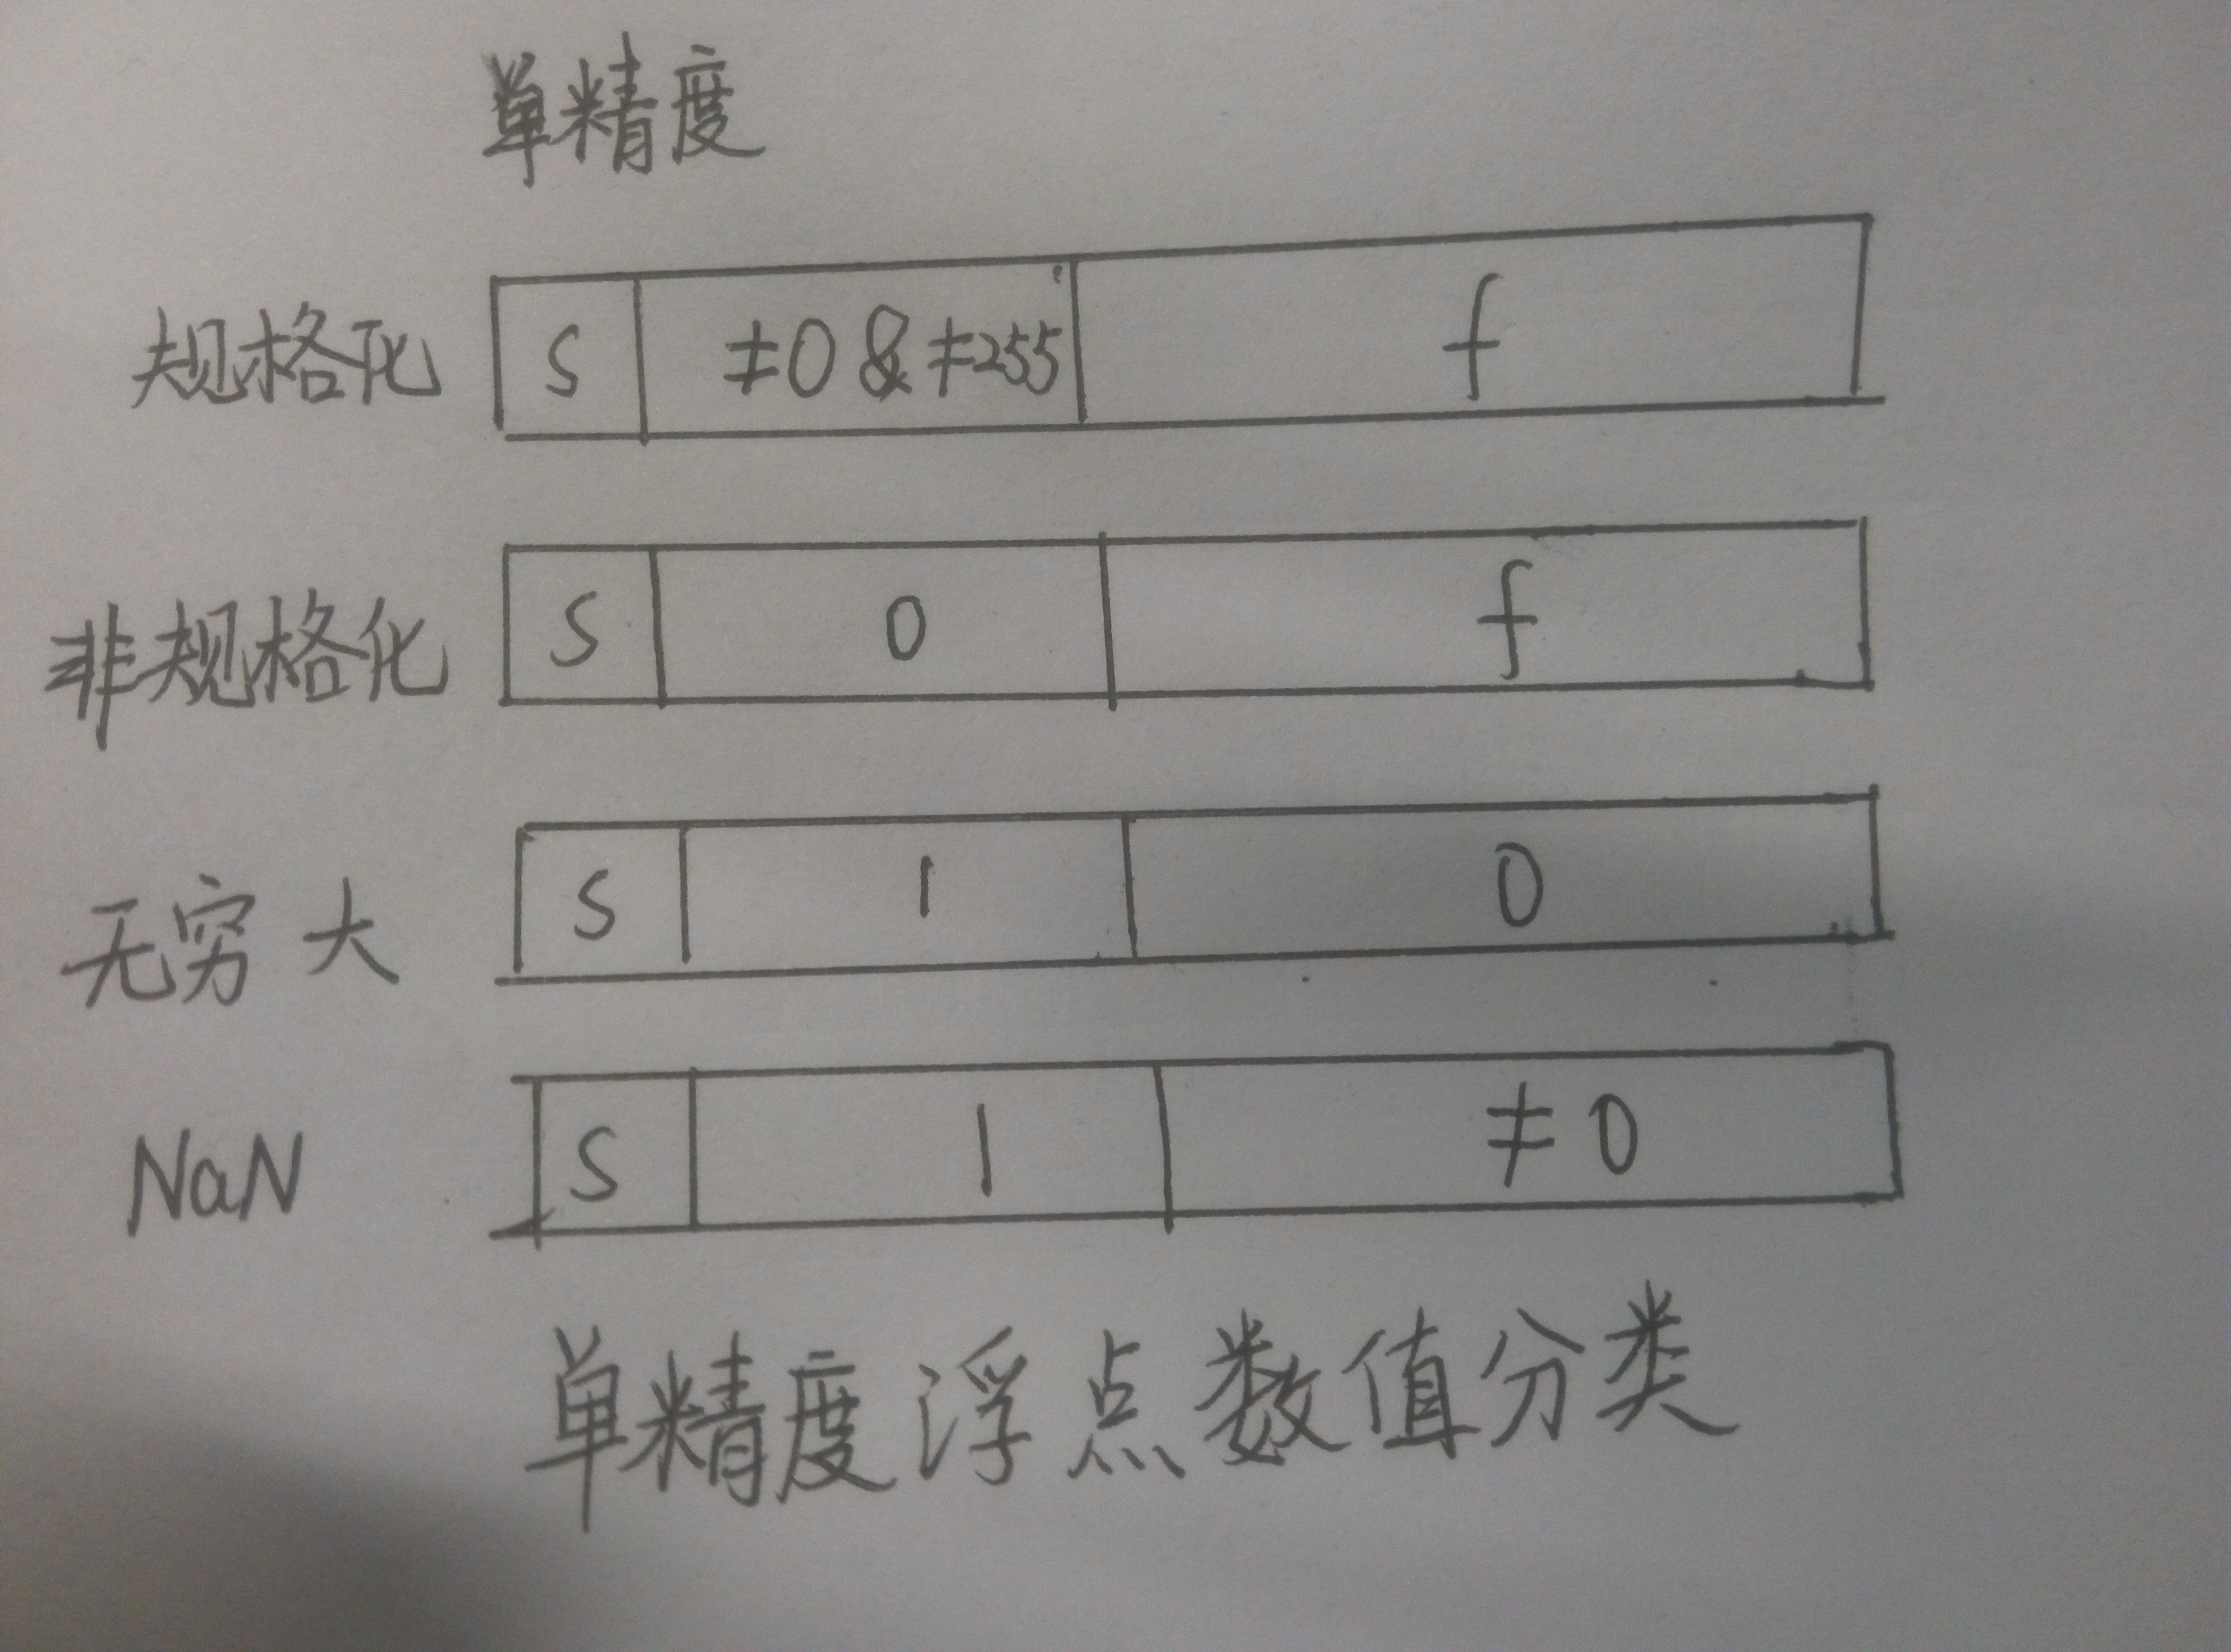 单精度
规格化 S ≠0 & ≠255 f
非规格化 S 0 f
无穷大 S 1 0
NaN S 1 ≠0
单精度浮点数值分类